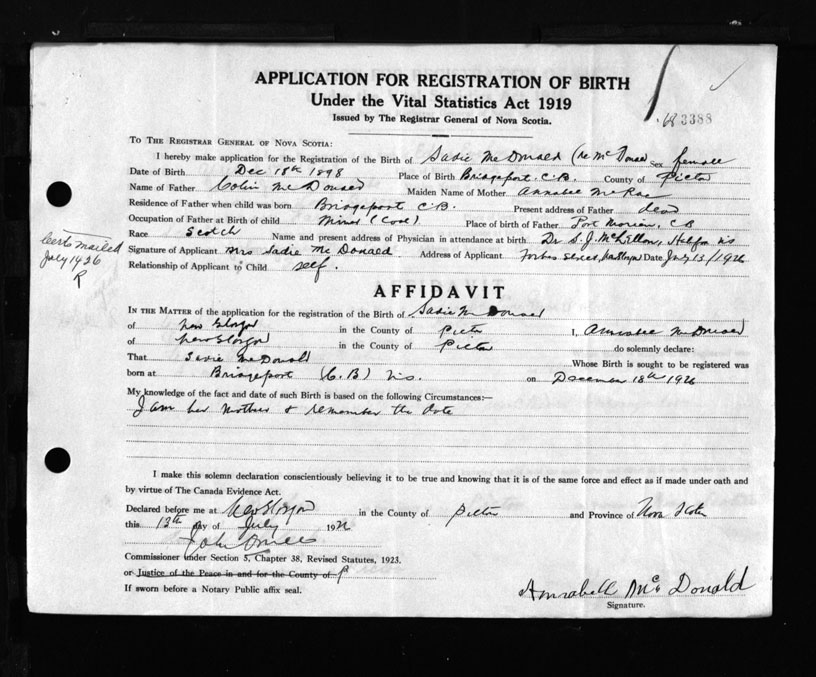 APPLICATION FOR REGISTRATION OF BIRTH
Under the Vital Statistics Act 1919
Issued by The Registrar General of Nova Scotia.
3388
TO THE REGISTRAR GENERAL OF NOVA SCOTIA:
I hereby make application for the Registration of the Birth of Sadie McDonald (ne McDonald Sex female
Date of Birth Dec 18th 1898 Place of Birth Bridgeport, C.B. County of Pictou
Name of Father Colin McDonald Maiden Name of Mother Annabel McRae
Residence of Father when child was born Bridgeport C.B. Present address of Father dead
Occupation of Father at Birth of child Miner (Coal) Place of birth of Father Port Morien, CB
Race Scotch Name and present address of Physician in attendance at birth Dr S.J. Halifax NS
Certs mailed
July 1926
R
Signature of Applicant Mrs Sadie McDonald Address of Applicant Forbes Street, Date July 13/1926
Relationship of Applicant to Child self.
AFFIDAVIT
IN THE MATTER of the application for the registration of the Birth of Sadie McDonald
of New Glasgow in the County of Pictou I, Annabel McDonald
of New Glasgow in the County of Pictou do solemnly declare:
That Sadie McDonald Whose Birth is sought to be registered was
born at Bridgeport (C.B) N.S. on December 18th 1926
My knowledge of the fact and date of such Birth is based on the following Circumstances:—
I am her mother & remember the date
I make this solemn declaration conscientiously believing it to be true and knowing that it is of the same force and effect as if made under oath and
by virtue of The Canada Evidence Act.
Declared before me at New Glasgow in the County of Pictou and Province of Nova Scotia
this 13th day of July 192
John
Commissioner under Section 5, Chapter 38, Revised Statutes, 1923.
or Justice of the Peace in and for the County of P
If sworn before a Notary Public affix seal.
Annabell McDonald
Signature.